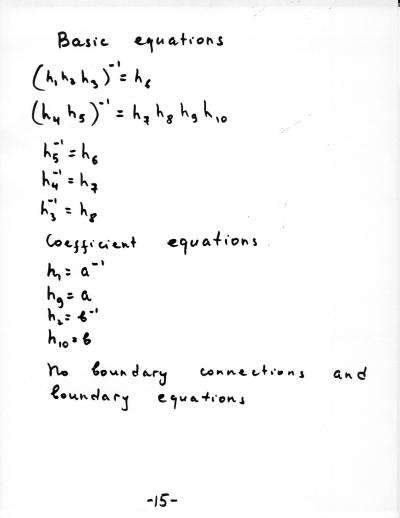 Basic equations
(h₁h₂h₃)⁻¹=h₆
(h₄h₅)⁻¹=h₇h₈h₉h₁₀
h₅⁻¹=h₆
h₄⁻¹=h₇
h₃⁻¹=h₈
Coefficient equations
h₁=a⁻¹
h₉=a
h₂=b⁻¹
h₁₀=b
No boundary connections and
boundary equations
-15-